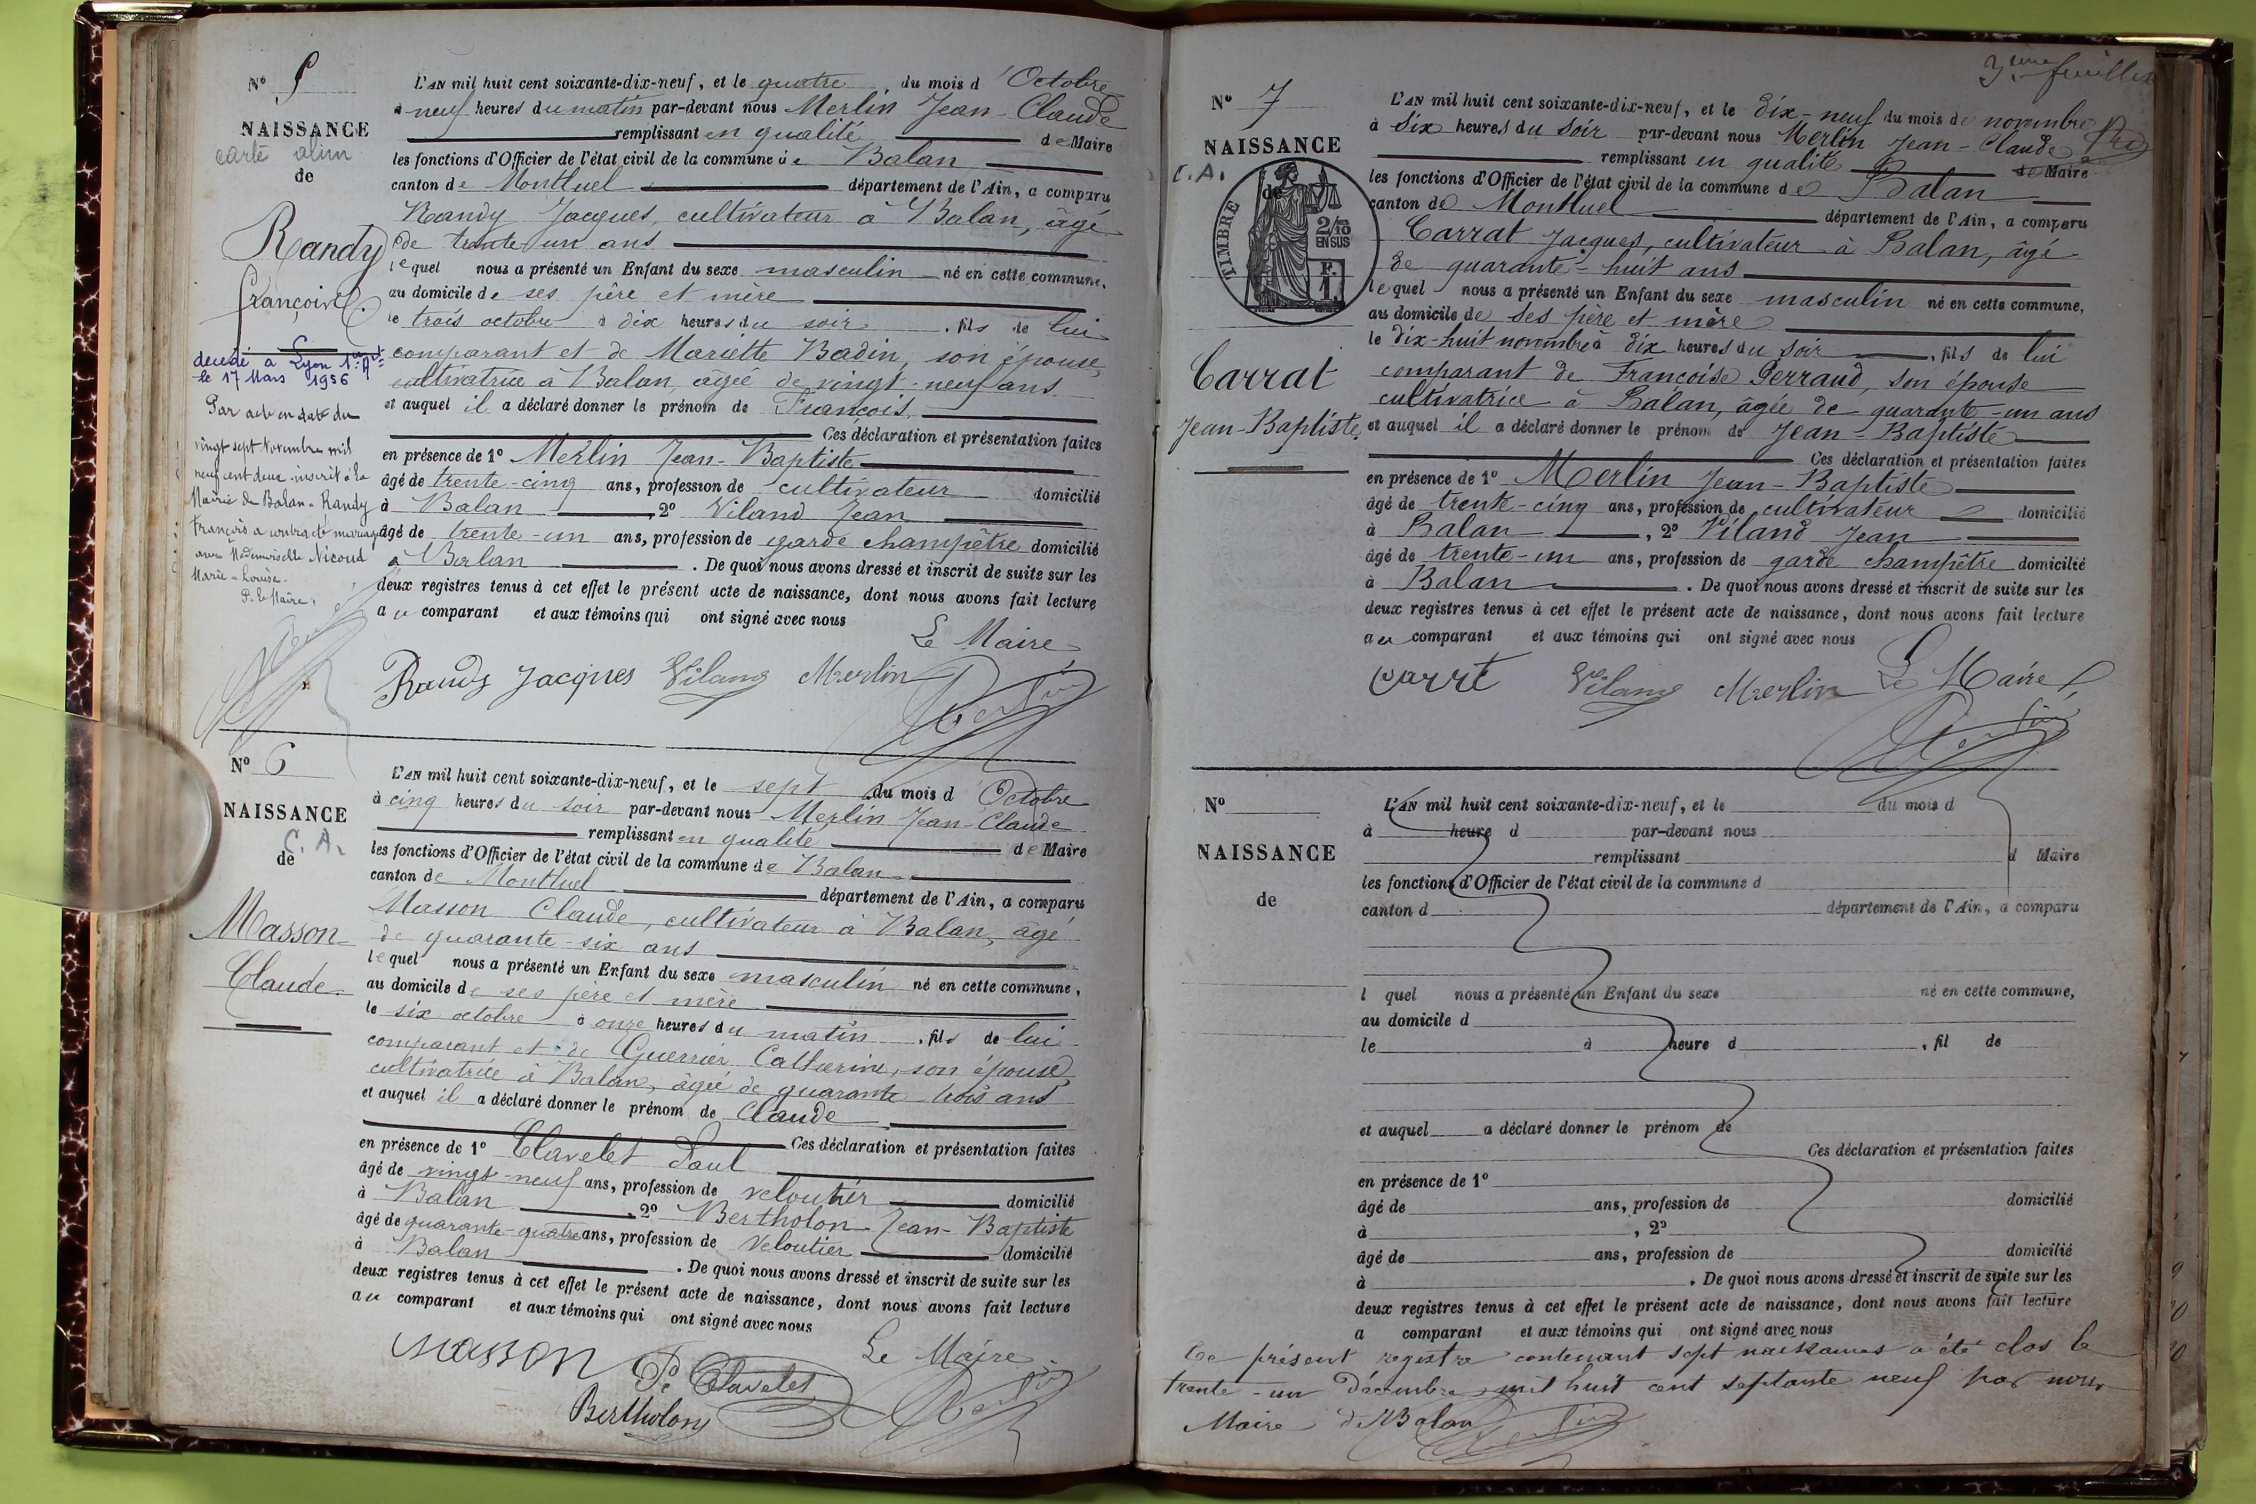 N° 5
NAISSANCE
carte alim
de
Randy
François
décédé à Lyon 1er Art
le 17 Mars 1956
Par acte en date du
vingt sept Novembre mil
neuf cent deux inscrit à la
Mairie de Balan - Randy
François a contracté mariage
avec Mademoiselle Nicoud
Marie-Louise.
P. le Maire,
L'AN mil huit cent soixante-dix-neuf, et le quatre du mois d'Octobre
à neuf heures du matin par-devant nous Merlin Jean-Claude
remplissant en qualité de Maire
les fonctions d'Officier de l'état civil de la commune de Balan
canton de Montluel département de l'Ain, a comparu
Randy Jacques, cultivateur à Balan, âgé
de trente un ans
lequel nous a présenté un Enfant du sexe masculin né en cette commune,
au domicile de ses père et mère
le trois octobre à dix heures du soir, fils de lui
comparant et de Mariette Badin, son épouse,
cultivatrice à Balan, âgée de vingt-neuf ans
et auquel il a déclaré donner le prénom de François.
Ces déclaration et présentation faites
en présence de 1° Merlin Jean-Baptiste
âgé de trente-cinq ans, profession de cultivateur domicilié
à Balan, 2° Viland Jean
âgé de trente-un ans, profession de garde champêtre domicilié
à Balan. De quoi nous avons dressé et inscrit de suite sur les
deux registres tenus à cet effet le présent acte de naissance, dont nous avons fait lecture
au comparant et aux témoins qui ont signé avec nous
Le Maire
Randy Jacques Viland Merlin
Merlin
N° 6
NAISSANCE
C. A.
de
Masson
Claude
L'AN mil huit cent soixante-dix-neuf, et le sept du mois d'Octobre
à cinq heures du soir par-devant nous Merlin Jean-Claude
remplissant en qualité de Maire
les fonctions d'Officier de l'état civil de la commune de Balan
canton de Montluel département de l'Ain, a comparu
Masson Claude, cultivateur à Balan, âgé
de quarante-six ans
lequel nous a présenté un Enfant du sexe masculin né en cette commune,
au domicile de ses père et mère
le six octobre à onze heures du matin, fils de lui
comparant et de Guerrier Catherine, son épouse,
cultivatrice à Balan, âgée de quarante trois ans
et auquel il a déclaré donner le prénom de Claude
Ces déclaration et présentation faites
en présence de 1° Clavelet Paul
âgé de vingt-neuf ans, profession de veloutier domicilié
à Balan, 2° Bertholon Jean-Baptiste
âgé de quarante-quatre ans, profession de veloutier domicilié
à Balan. De quoi nous avons dressé et inscrit de suite sur les
deux registres tenus à cet effet le présent acte de naissance, dont nous avons fait lecture
au comparant et aux témoins qui ont signé avec nous
Le Maire
Masson P. Clavelet
Bertholon Merlin
3ème feuillet
N° 7
NAISSANCE
C. A.
de
TIMBRE
2/10
EN SUS
F.
1
Carrat
Jean-Baptiste.
L'AN mil huit cent soixante-dix-neuf, et le dix-neuf du mois de novembre
à six heures du soir par-devant nous Merlin Jean-Claude
remplissant en qualité de Maire
les fonctions d'Officier de l'état civil de la commune de Balan
canton de Montluel département de l'Ain, a comparu
Carrat Jacques, cultivateur à Balan, âgé
de quarante-huit ans
lequel nous a présenté un Enfant du sexe masculin né en cette commune,
au domicile de ses père et mère
le dix-huit novembre à dix heures du soir, fils de lui
comparant de Françoise Perraud, son épouse
cultivatrice à Balan, âgée de quarante-un ans
et auquel il a déclaré donner le prénom de Jean-Baptiste
Ces déclaration et présentation faites
en présence de 1° Merlin Jean-Baptiste
âgé de trente-cinq ans, profession de cultivateur domicilié
à Balan, 2° Viland Jean
âgé de trente-un ans, profession de garde champêtre domicilié
à Balan. De quoi nous avons dressé et inscrit de suite sur les
deux registres tenus à cet effet le présent acte de naissance, dont nous avons fait lecture
au comparant et aux témoins qui ont signé avec nous
Le Maire
Carrt Viland Merlin
Merlin
N°
NAISSANCE
de
L'AN mil huit cent soixante-dix-neuf, et le du mois d
à heure d par-devant nous
remplissant d Maire
les fonctions d'Officier de l'état civil de la commune d
canton d département de l'Ain, a comparu
l quel nous a présenté un Enfant du sexe né en cette commune,
au domicile d
le à heure d, fil de
et auquel a déclaré donner le prénom de
Ces déclaration et présentation faites
en présence de 1°
âgé de ans, profession de domicilié
à, 2°
âgé de ans, profession de domicilié
à. De quoi nous avons dressé et inscrit de suite sur les
deux registres tenus à cet effet le présent acte de naissance, dont nous avons fait lecture
a comparant et aux témoins qui ont signé avec nous
Le présent registre contenant sept naissances a été clos le
trente-un Décembre mil huit cent septante neuf par nous
Maire de Balan
Merlin